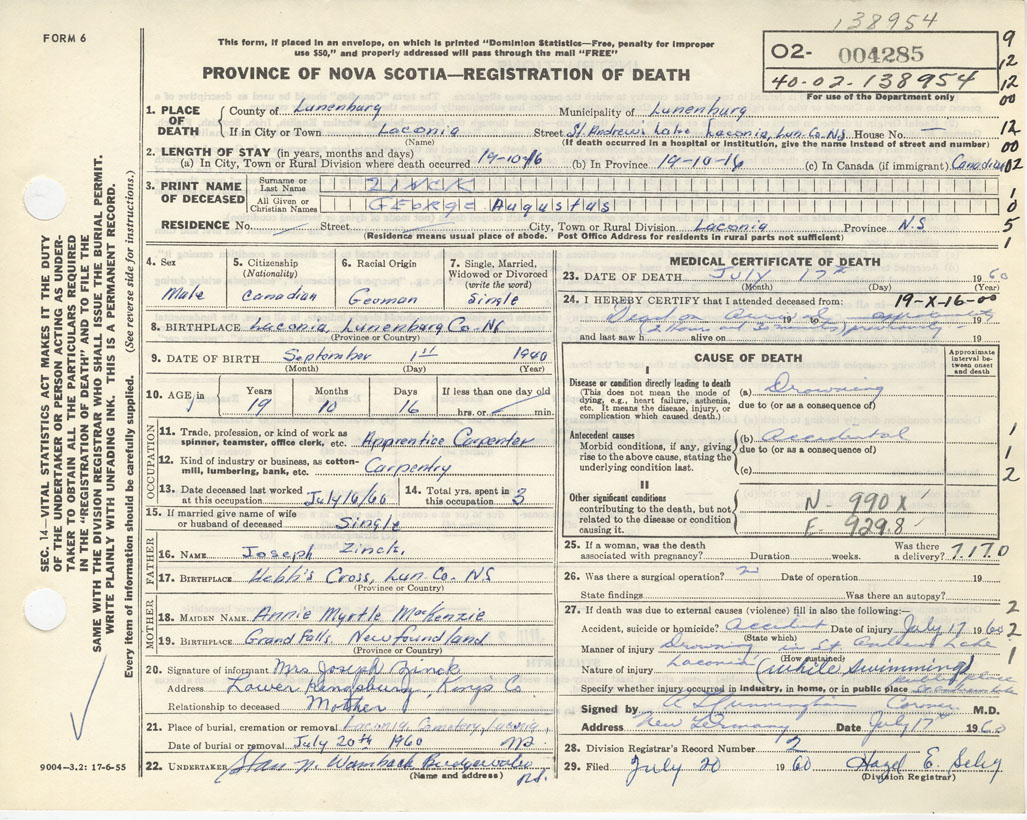 138954
FORM 6
This form, if placed in an envelope, on which is printed "Dominion Statistics—Free, penalty for improper
use $50," and properly addressed will pass through the mail "FREE"
PROVINCE OF NOVA SCOTIA—REGISTRATION OF DEATH
O2- 004285
40-02-138954
For use of the Department only
9
12
12
00
12
00
02
1
0
5
1
SEC. 14—VITAL STATISTICS ACT MAKES IT THE DUTY
OF THE UNDERTAKER OR PERSON ACTING AS UNDER-
TAKER TO OBTAIN ALL THE PARTICULARS REQUIRED
IN THE "REGISTRATION OF DEATH" AND TO FILE THE
SAME WITH THE DIVISION REGISTRAR WHO SHALL ISSUE THE BURIAL PERMIT.
WRITE PLAINLY WITH UNFADING INK. THIS IS A PERMANENT RECORD.
Every item of information should be carefully supplied. (See reverse side for instructions.)
1. PLACE OF DEATH
County of Lunenburg Municipality of Lunenburg
If in City or Town Laconia Street St. Andrews Lake Laconia, Lun. Co. N.S. House No. —
(Name) (If death occurred in a hospital or institution, give the name instead of street and number)
2. LENGTH OF STAY (in years, months and days)
(a) In City, Town or Rural Division where death occurred 19-10-16 (b) In Province 19-10-16 (c) In Canada (if immigrant) Canadian
3. PRINT NAME OF DECEASED
Surname or Last Name ZINCK
All Given or Christian Names GEorgE Augustus
RESIDENCE No. Street City, Town or Rural Division Laconia Province N.S
(Residence means usual place of abode. Post Office Address for residents in rural parts not sufficient)
4. Sex Male
5. Citizenship (Nationality) Canadian
6. Racial Origin German
7. Single, Married, Widowed or Divorced (write the word) Single
8. BIRTHPLACE Laconia, Lunenburg Co-NS
(Province or Country)
9. DATE OF BIRTH September 1st 1940
(Month) (Day) (Year)
10. AGE Years 19 Months 10 Days 16 If less than one day old hrs. or min.
OCCUPATION
11. Trade, profession, or kind of work as spinner, teamster, office clerk, etc. Apprentice Carpenter
12. Kind of industry or business, as cotton-mill, lumbering, bank, etc. Carpentry
13. Date deceased last worked at this occupation July/6/60
14. Total yrs. spent in this occupation 3
15. If married give name of wife or husband of deceased Single
FATHER
16. NAME Joseph Zinck,
17. BIRTHPLACE Hebb's Cross, Lun. Co. NS
(Province or Country)
MOTHER
18. MAIDEN NAME Annie Myrtle MacKenzie
19. BIRTHPLACE Grand Falls, Newfoundland
(Province or Country)
20. Signature of informant Mrs Joseph Zinck
Address Lower Kingsburg, Kings Co
Relationship to deceased Mother
21. Place of burial, cremation or removal Laconia Cemetery, Laconia,
Date of burial or removal July 20th 1960 NS.
22. UNDERTAKER N. Wambach Bridgewater N.S.
(Name and address)
9004—3.2: 17-6-55
MEDICAL CERTIFICATE OF DEATH
23. DATE OF DEATH July 17th 1960
(Month) (Day) (Year)
24. I HEREBY CERTIFY that I attended deceased from: 19-X-16-00
Dead on arrival, 19 to approximately 19
and last saw h alive on (2 hours and 30 minutes) previously 19
CAUSE OF DEATH
Approximate interval between onset and death
I
Disease or condition directly leading to death
(This does not mean the mode of dying, e.g., heart failure, asthenia, etc. It means the disease, injury, or complication which caused death.)
(a) Drowning
due to (or as a consequence of)
Antecedent causes
Morbid conditions, if any, giving rise to the above cause, stating the underlying condition last.
(b) Accidental
due to (or as a consequence of)
(c)
1
1
2
II
Other significant conditions
contributing to the death, but not related to the disease or condition causing it.
N- 990 X
E- 929.8
25. If a woman, was the death associated with pregnancy? Duration weeks. Was there a delivery? 7.17.0
26. Was there a surgical operation? Date of operation 19
State findings Was there an autopsy?
27. If death was due to external causes (violence) fill in also the following:—
Accident, suicide or homicide? Accident Date of injury July 17 1960
(State which)
Manner of injury Drowning in St. Andrews Lake
(How sustained)
Nature of injury Laconia (while swimming)
Specify whether injury occurred in industry, in home, or in public place public place
2
2
1
Signed by Cunningham Coroner M.D.
Address New Germany Date July 17th 1960
28. Division Registrar's Record Number 2
29. Filed July 20 1960 Hazel E. Seley
(Division Registrar)